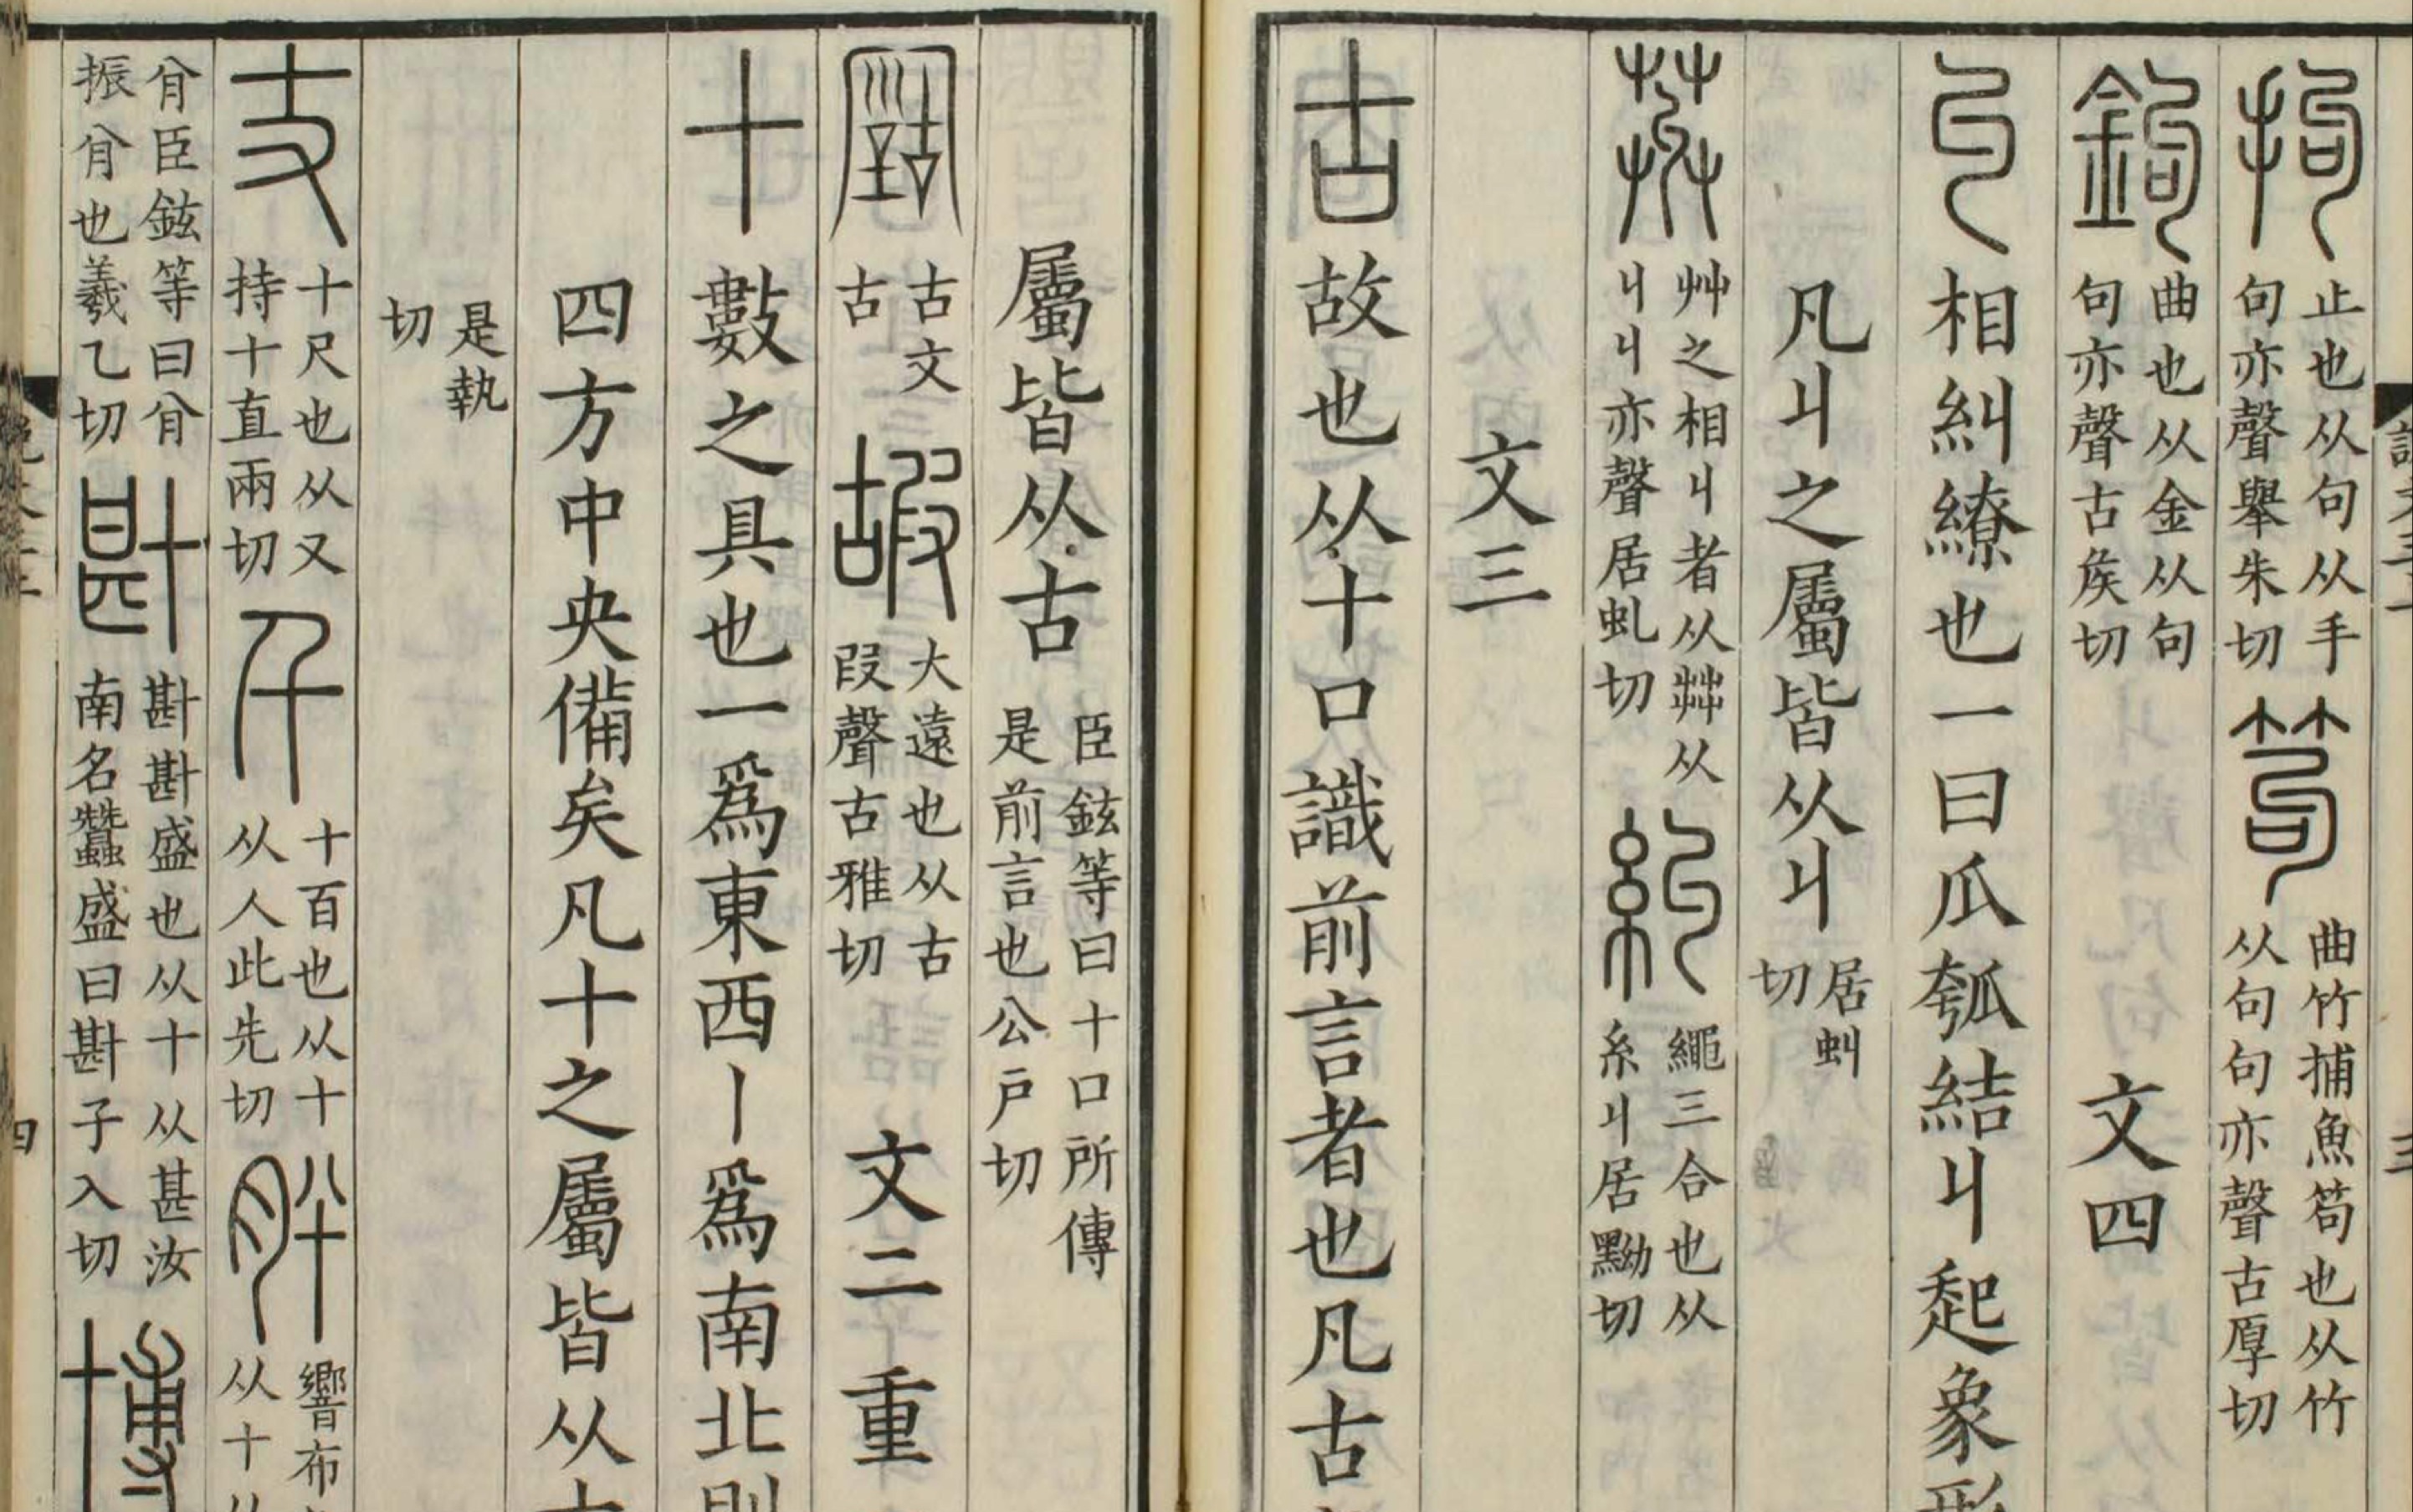 拘止也从句从手句亦聲舉朱切笱曲竹捕魚笱也从竹从句句亦聲古厚切
鉤曲也从金从句句亦聲古矦切 文四
丩相糾繚也一曰瓜瓠結丩起象形
凡丩之屬皆从丩居虯切
艸之相丩者从茻从丩丩亦聲居虬切糾繩三合也从糸丩居黝切
文三
古故也从十口識前言者也凡古
屬皆从古臣鉉等曰十口所傳是前言也公戶切
古文古嘏大遠也从古叚聲古雅切 文二 重
十數之具也一爲東西丨爲南北則
四方中央備矣凡十之屬皆从十
是執切
丈十尺也从又持十直兩切千十百也从十从人此先切肸響布从十从
𦙍臣鉉等曰𦙍振𦙍也羲乙切卙卙卙盛也从十从甚汝南名蠶盛曰卙子入切博
四